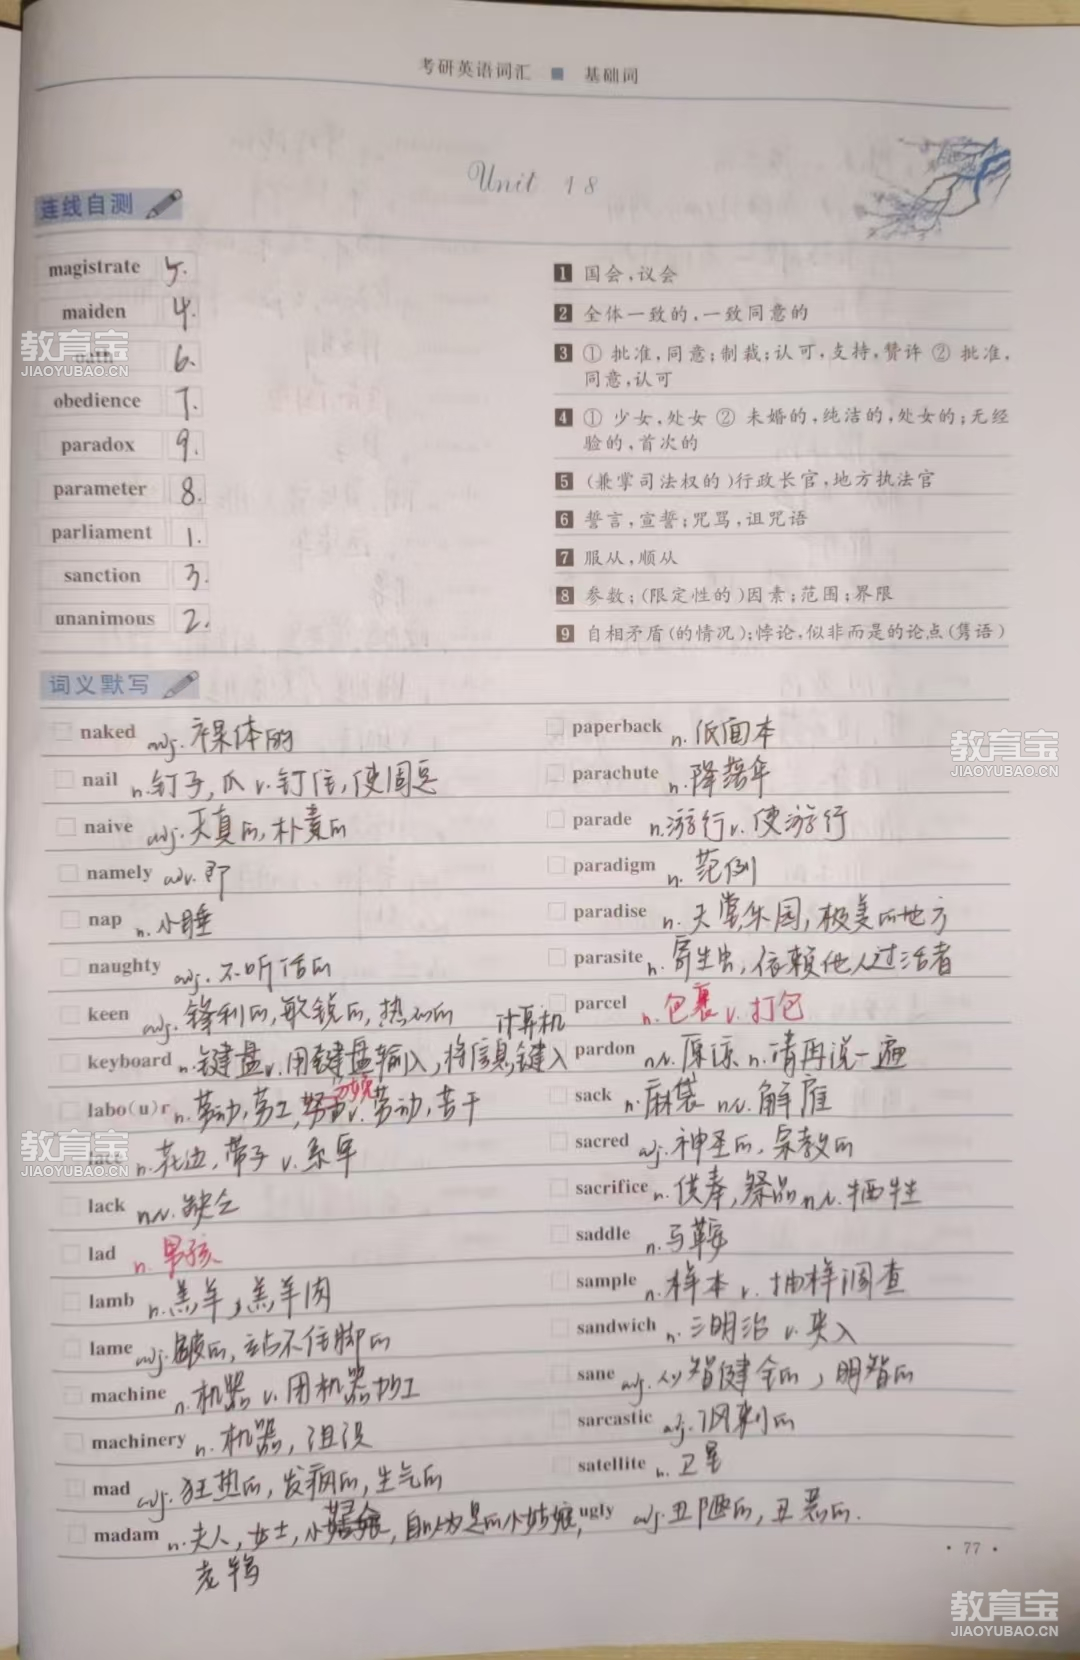 考研英语词汇 ■ 基础词
Unit 18
连线自测
magistrate 5.
maiden 4.
oath 6.
obedience 7.
paradox 9.
parameter 8.
parliament 1.
sanction 3.
unanimous 2.
1 国会,议会
2 全体一致的,一致同意的
3 ① 批准,同意;制裁;认可,支持,赞许 ② 批准,
同意,认可
4 ① 少女,处女 ② 未婚的,纯洁的,处女的;无经
验的,首次的
5 (兼掌司法权的)行政长官,地方执法官
6 誓言,宣誓;咒骂,诅咒语
7 服从,顺从
8 参数;(限定性的)因素;范围;界限
9 自相矛盾(的情况);悖论,似非而是的论点(隽语)
词义默写
naked adj. 裸体的
nail n.钉子,爪 v.钉住,使固定
naive adj.天真的,朴素的
namely adv.即
nap n.小睡
naughty adj.不听话的
keen adj.锋利的,敏锐的,热心的
计算机
keyboard n.键盘 v.用键盘输入,将信息键入
labo(u)r n.劳动,劳工, 分娩 v.劳动,苦干
lace n.花边,带子 v.系
lack n.v.缺乏
lad n.男孩
lamb n.羔羊,羔羊肉
lame adj.跛的,站不住脚的
machine n.机器 v.用机器加工
machinery n.机器,
mad adj.狂热的,发疯的,生气的
madam n.夫人,女士, 自以为是的小姑娘,
老鸨
paperback n.纸面本
parachute n.降落伞
parade n.游行 v.使游行
paradigm n.范例
paradise n.天堂,乐园,极美的地方
parasite n.寄生虫,依赖他人过活者
parcel n.包裹 v.打包
pardon n.v.原谅 n.请再说一遍
sack n.麻袋 n.v.解雇
sacred adj.神圣的,宗教的
sacrifice n.供奉,祭品 n.v.牺牲
saddle n.马鞍
sample n.样本 v.抽样调查
sandwich n.三明治 v.夹入
sane adj.心智健全的,明智的
sarcastic adj.讽刺的
satellite n.卫星
ugly adj.丑陋的,丑恶的.
· 77 ·
教育宝
JIAOYUBAO.CN
教育宝
JIAOYUBAO.CN
教育宝
JIAOYUBAO.CN
教育宝
JIAOYUBAO.CN